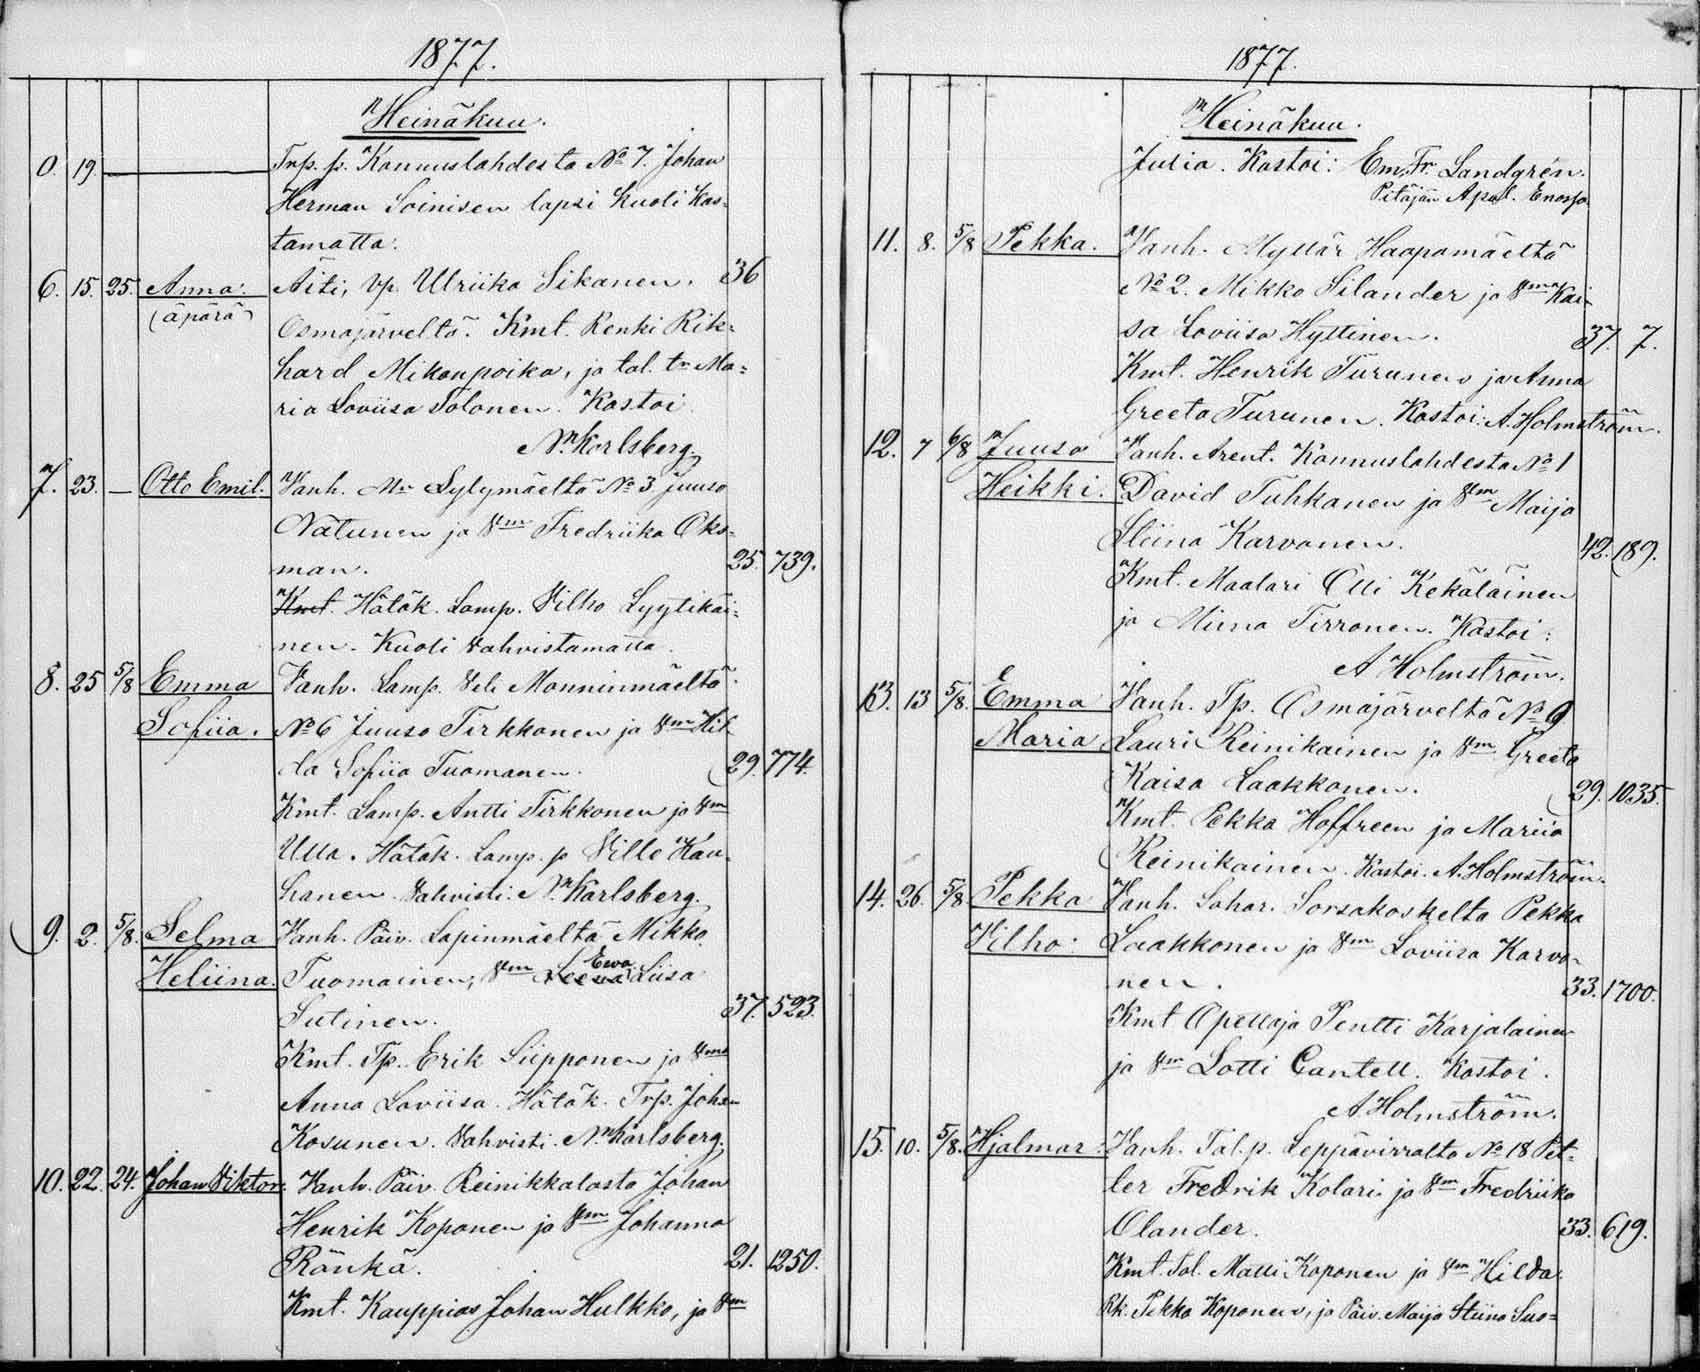 1877.
Heinäkuu.
0. 19. Trp. p. Konnuslahdesta No 7. Johan
Herman Soinisen lapsi kuoli kas-
tamatta.
6. 15. 25. Anna. Äiti, Vp. Ulriika Sikanen. 36
(äpärä) Osmajärveltä. Kmt. Renki Rik-
hard Mikonpoika, ja tal. tr Ma-
ria Loviisa Tolonen. Kastoi
N. Karlsberg.
7. 23. — Otto Emil. Vanh. Mr Sylymäeltä No 3 Juuso
Natunen ja Vm Fredriika Oks-
man. 25. 739.
Kmt. Hätäk. Lamp. Vilho Lyytikäi-
nen. Kuoli vahvistamatta.
8. 25 5/8 Emma Vanh. Lamp. Veli Monninmäeltä
Sofiia. No 6 Juuso Tirkkonen ja Vm Hil-
da Sofiia Tuomanen. 29. 774.
Kmt. Lamp. Antti Tirkkonen ja Vm
Ulla. Hätäk. Lamp. p Ville Kau-
hanen. Vahvisti: N. Karlsberg.
9. 2. 5/8. Selma Vanh. Päiv. Lapinmäeltä Mikko
Heliina. Tuomainen, Vm Eeva Liisa
Sutinen. 37. 523.
Kmt. Tp. Erik Siipponen ja Vmo
Anna Loviisa. Hätäk. Trp. Johan
Kosunen. Vahvisti. N. Karlsberg.
10. 22. 24. Johan Viktor. Vanh. Päiv. Reinikkalasta Johan
Henrik Koponen ja Vm Johanna
Ränkä. 21. 1250.
Kmt. Kauppias Johan Hulkko, ja Vm
1877.
Heinäkuu.
Julia. Kastoi: Em. Fr. Landgrén.
Pitäjän Apul. Enossa.
11. 8. 5/8 Pekka. Vanh. Myllär Haapamäeltä
No 2. Mikko Silander ja Vmo Kai-
sa Loviisa Hyttinen. 37. 7.
Kmt. Henrik Turunen ja Anna
Greeta Turunen. Kastoi: A. Holmström.
12. 7 6/8 Juuso Vanh. Arent. Konnuslahdesta No 1
Heikki. David Tuhkanen ja Vm Maija
Stiina Karvonen. 42. 189.
Kmt. Maalari Olli Kekäläinen
ja Miina Tirronen. Kastoi:
A Holmström.
13. 13 5/8. Emma Vanh. Tp. Osmajärveltä No 9
Maria Lauri Reinikainen ja Vm Greeta
Kaisa Laakkonen. 29. 1035.
Kmt. Pekka Hoffreen ja Mariia
Reinikainen. Kastoi. A. Holmström.
14. 26. 5/8. Pekka Vanh. Sahar. Sorsakoskelta Pekka
Vilho: Laakkonen ja Vm Loviisa Karvo-
nen. 33. 1700.
Kmt Opettaja Pentti Karjalainen
ja Vm Lotti Cantell. Kastoi.
A. Holmström.
15. 10. 5/8. Hjalmar: Vanh. Tal. p. Leppävirralta No 18 Pet-
ter Fredrik Kolari ja Vm Fredriika
Olander. 33. 619.
Kmt. Tal. Matti Koponen ja Vm Hilda.
Rk. Pekka Koponen, ja Päiv. Maija Stiina Suo-